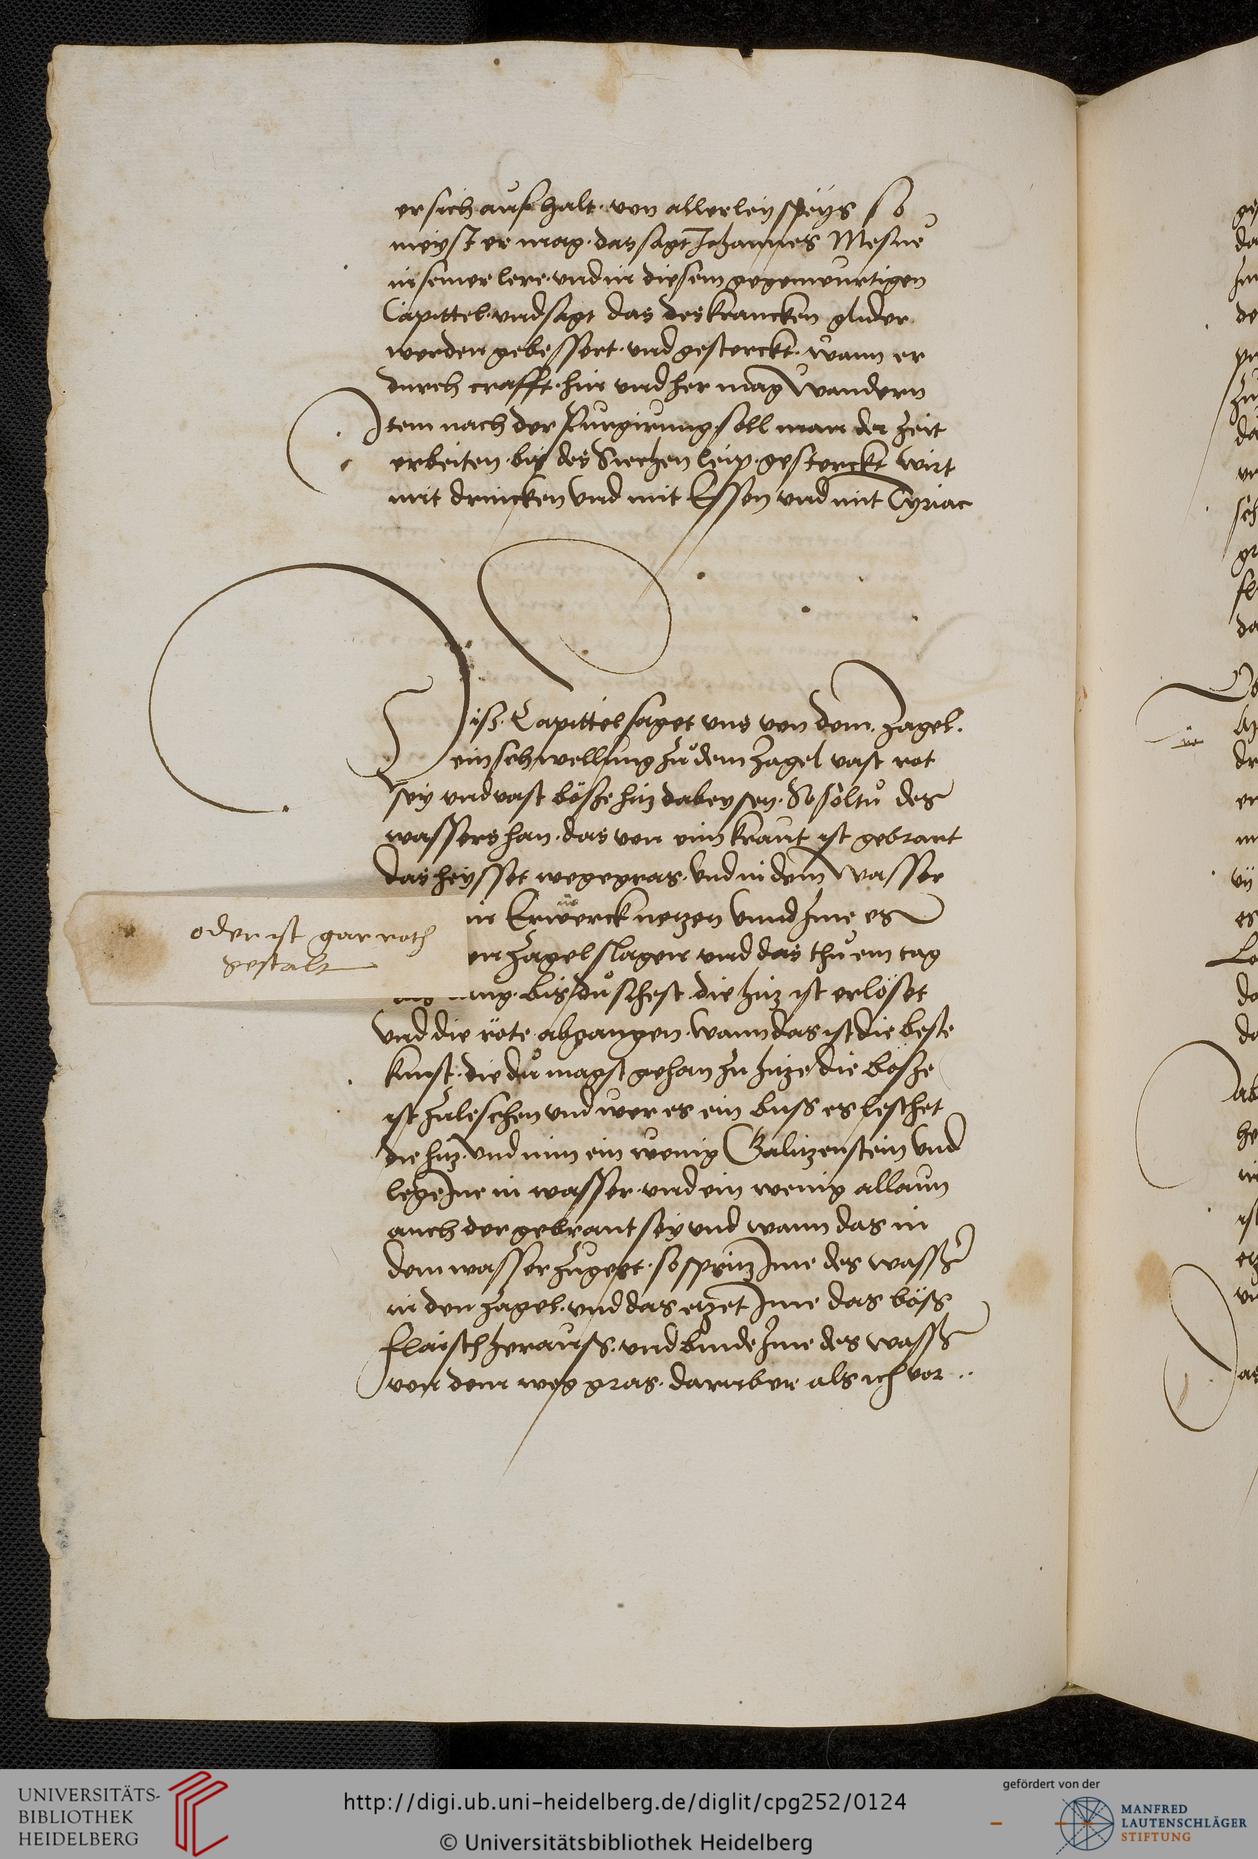 er sich auf halt · von allerley speyß so
meyst er mag · das sagt Johannes Mesue
in seiner lere · vnd in diesem gegenwurtigen
Capittel · vnd sagt das des krancken glider
werden gebessert · vnd gesterckt · wann er
durch crafft · hin vnd her mag wandern
Jtem nach der Purgirung · soll man der zeit
erbeiten · biß des Siechen leip · gesterckt wirt
mit drincken vnd mit Essen vnd mit Tyriac
Diß · Capittel saget vns von dem · zagel ·
ein schwellung zů dem zagel vast rot
sey vnd vast böße hitz dabey sey · So soltu des
wassers han · das von eim kraut ist gebrant
das heysset wegegras · vnd in dem wasser
oder ist gar roth
gestalt
in Erwerck netzen vnnd Ime es
en zagel slagen vnd das thů ein tag
lang · biß du sehest · die hitz ist erlöset
vnd die röte abgangen · wann das ist die beste
kunst · die du magst gehan zu hitze die böße
ist zuleschen vnd wer es ein buss es leschet
die hitz · vnd nim ein wenig Galitzenstein vnd
lege Jne in wasser · vnd ein wenig allaun
auch der gebrant sey vnd wann das in
dem wasser zuget · so spritz Jme des wasß
in den zagel · vnd das etzet Jme das böß
flaisch heraus · vnd binde Ime des wasß
von dem weg gras · darüber als ich vor ··
UNIVERSITÄTS-
BIBLIOTHEK
HEIDELBERG
http://digi.ub.uni-heidelberg.de/diglit/cpg252/0124
© Universitätsbibliothek Heidelberg
gefördert von der
MANFRED
LAUTENSCHLÄGER
STIFTUNG